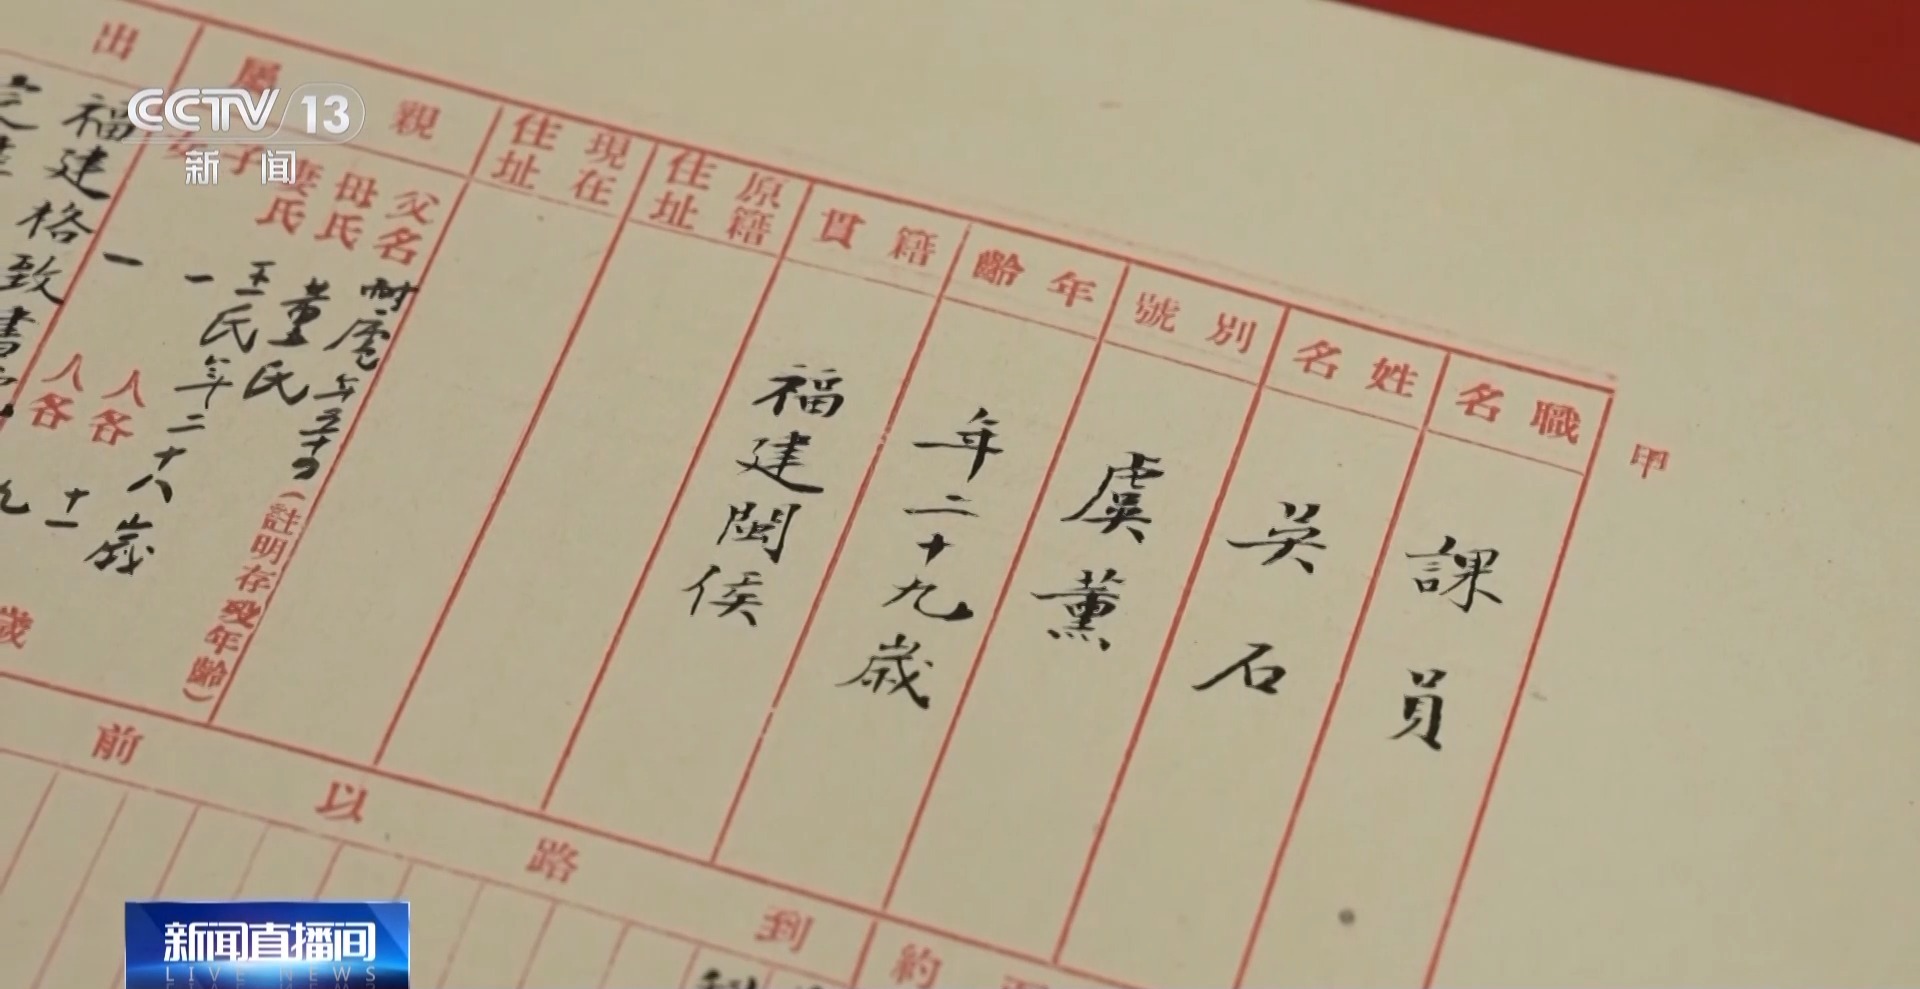 CCTV 13
新闻
甲
職名
課員
姓名
吳石
別號
虞薰
年齡
年二十九歲
籍貫
福建閩侯
原籍住址
現在住址
親屬
父名
年五十
(註明存殁年齡)
母氏
董氏
妻氏
王氏年二十八歲
子
一人各十一
女
一人各
歲
出
福建格致書
到路以前
約
新闻直播间
LIVE NEWS